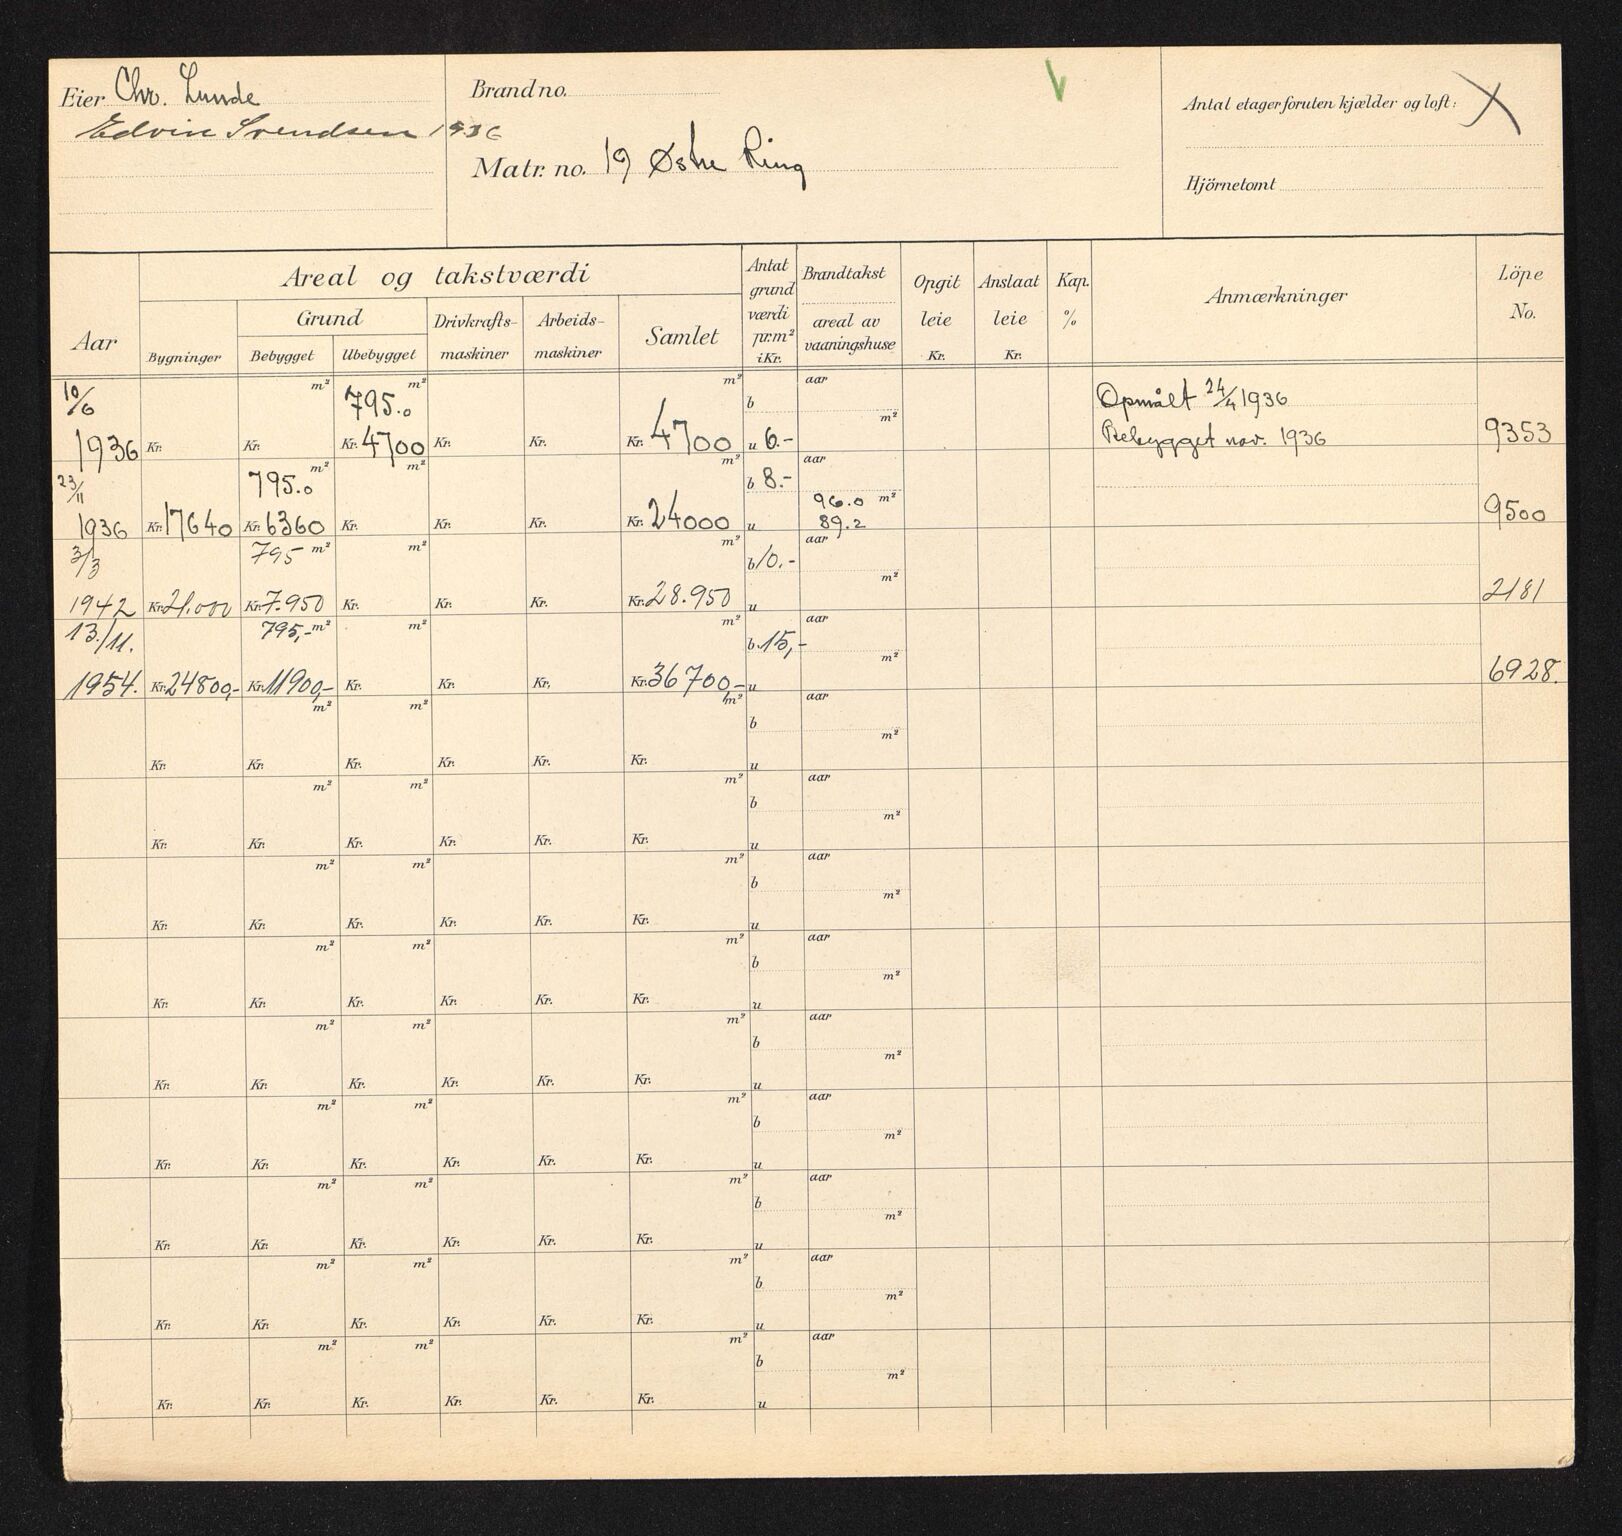 Eier Chr. Lunde
Edvin Svendsen 1936
Brand no.
Matr. no. 19 Østre Ring
Antal etager foruten kjælder og loft:
Hjörnetomt
Aar
Areal og takstværdi
Bygninger
Grund
Bebygget Ubebygget
Drivkrafts-
maskiner
Arbeids-
maskiner
Samlet
Antat
grund
værdi
pr. m²
i Kr.
Brandtakst
areal av
vaaningshuse
Opgit
leie
Kr.
Anslaat
leie
Kr.
Kap.
%
Anmærkninger
Löpe
No.
10/6 m² 795.0 m² m² b aar m² Opmålt 24/4 1936
1936 Kr. Kr. Kr. 4700 Kr. Kr. Kr. 4700 u 6.- Bebygget nov. 1936 9353
23/11 795.0 m² m² m² b 8.- aar 96.0 m²
1936 Kr. 17640 Kr. 6360 Kr. Kr. Kr. Kr. 24000 u 89.2 9500
3/3 795 m² m² m² b 10.- aar m²
1942 Kr. 21.000 Kr. 7.950 Kr. Kr. Kr. Kr. 28.950 u 2181
13./11. 795,- m² m² m² b 15,- aar m²
1954. Kr. 24800,- Kr. 11900,- Kr. Kr. Kr. Kr. 36700,- u 6928.
m² m² m² b aar m²
Kr. Kr. Kr. Kr. Kr. Kr. u
m² m² m² b aar m²
Kr. Kr. Kr. Kr. Kr. Kr. u
m² m² m² b aar m²
Kr. Kr. Kr. Kr. Kr. Kr. u
m² m² m² b aar m²
Kr. Kr. Kr. Kr. Kr. Kr. u
m² m² m² b aar m²
Kr. Kr. Kr. Kr. Kr. Kr. u
m² m² m² b aar m²
Kr. Kr. Kr. Kr. Kr. Kr. u
m² m² m² b aar m²
Kr. Kr. Kr. Kr. Kr. Kr. u
m² m² m² b aar m²
Kr. Kr. Kr. Kr. Kr. Kr. u
m² m² m² b aar m²
Kr. Kr. Kr. Kr. Kr. Kr. u